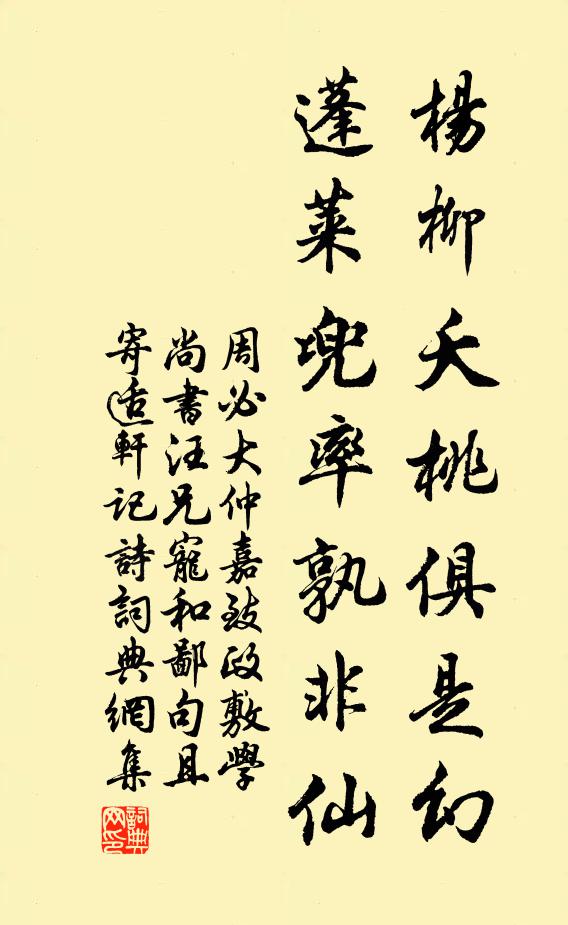 楊柳夭桃俱是幻
蓬萊兜率孰非仙
周必大仲嘉致政敷學
尚書汪兄寵和鄙句且
寄适軒記詩詞典網集
詞典
网印